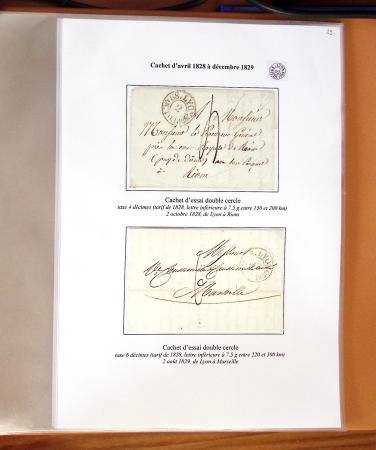 Cachet d'avril 1828 à décembre 1829
Monsieur
Monsieur le Procureur Général
près la cour Royale de Riom
(puy de dôme)
à Riom
Cachet d'essai double cercle
taxe 4 décimes (tarif de 1828, lettre inférieure à 7.5 g entre 150 et 200 km)
2 octobre 1828, de Lyon à Riom
Messieurs
Marseille
Cachet d'essai double cercle
taxe 6 décimes (tarif de 1828, lettre inférieure à 7.5 g entre 220 et 300 km)
2 août 1829, de Lyon à Marseille